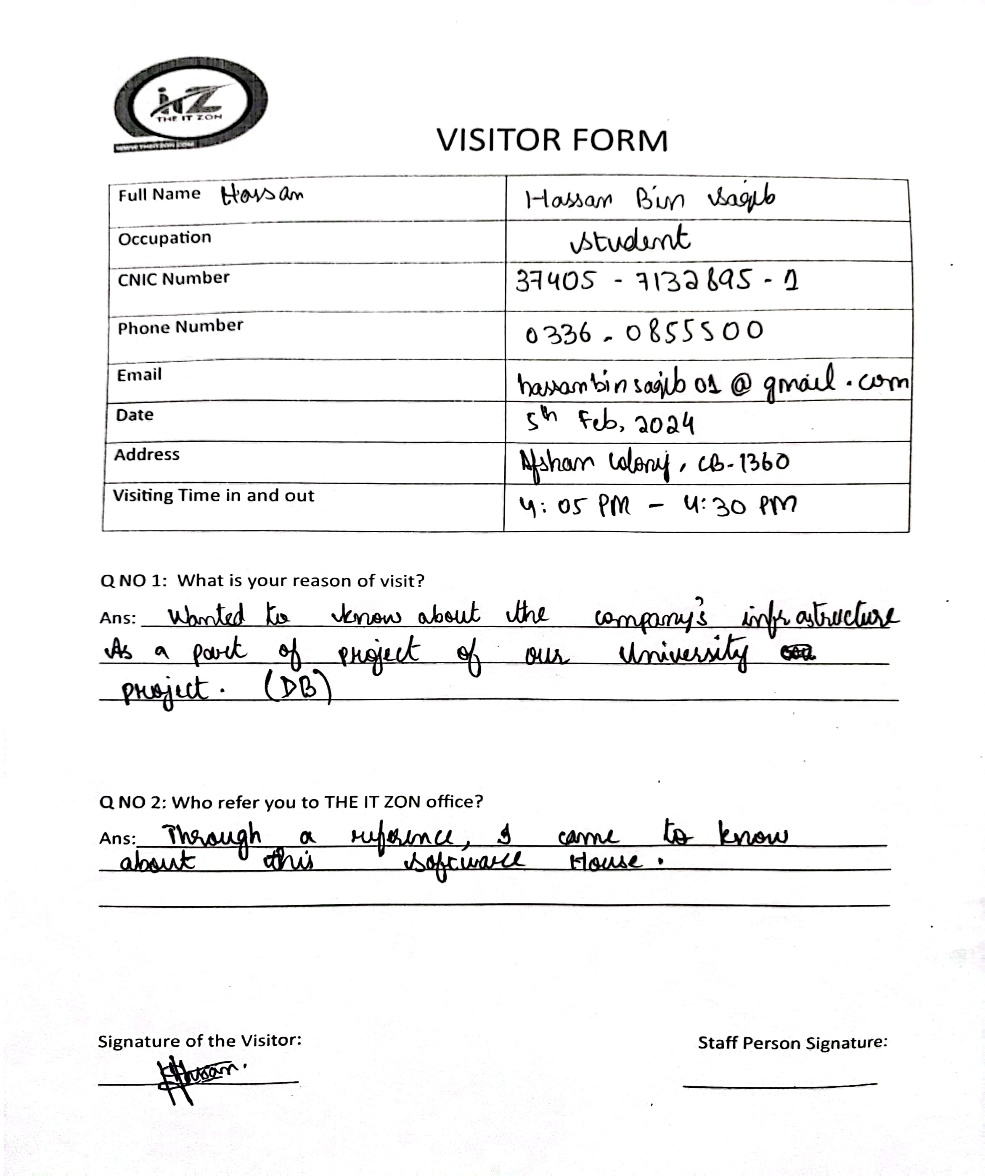 itZ
THE IT ZON
WWW.THEITZON.COM
VISITOR FORM
Full Name Hassan Hassan Bin Saqib
Occupation Student
CNIC Number 37405 - 7132895 - 1
Phone Number 0336 - 0855500
Email hassanbinsaqib01@gmail.com
Date 5th Feb, 2024
Address Afshan Colony, CB-1360
Visiting Time in and out 4:05 PM - 4:30 PM
Q NO 1: What is your reason of visit?
Ans: Wanted to know about the company's infrastructure
As a part of project of our University
project. (DB)
Q NO 2: Who refer you to THE IT ZON office?
Ans: Through a reference, I came to know
about this software House.
Signature of the Visitor: Staff Person Signature:
Hassan.